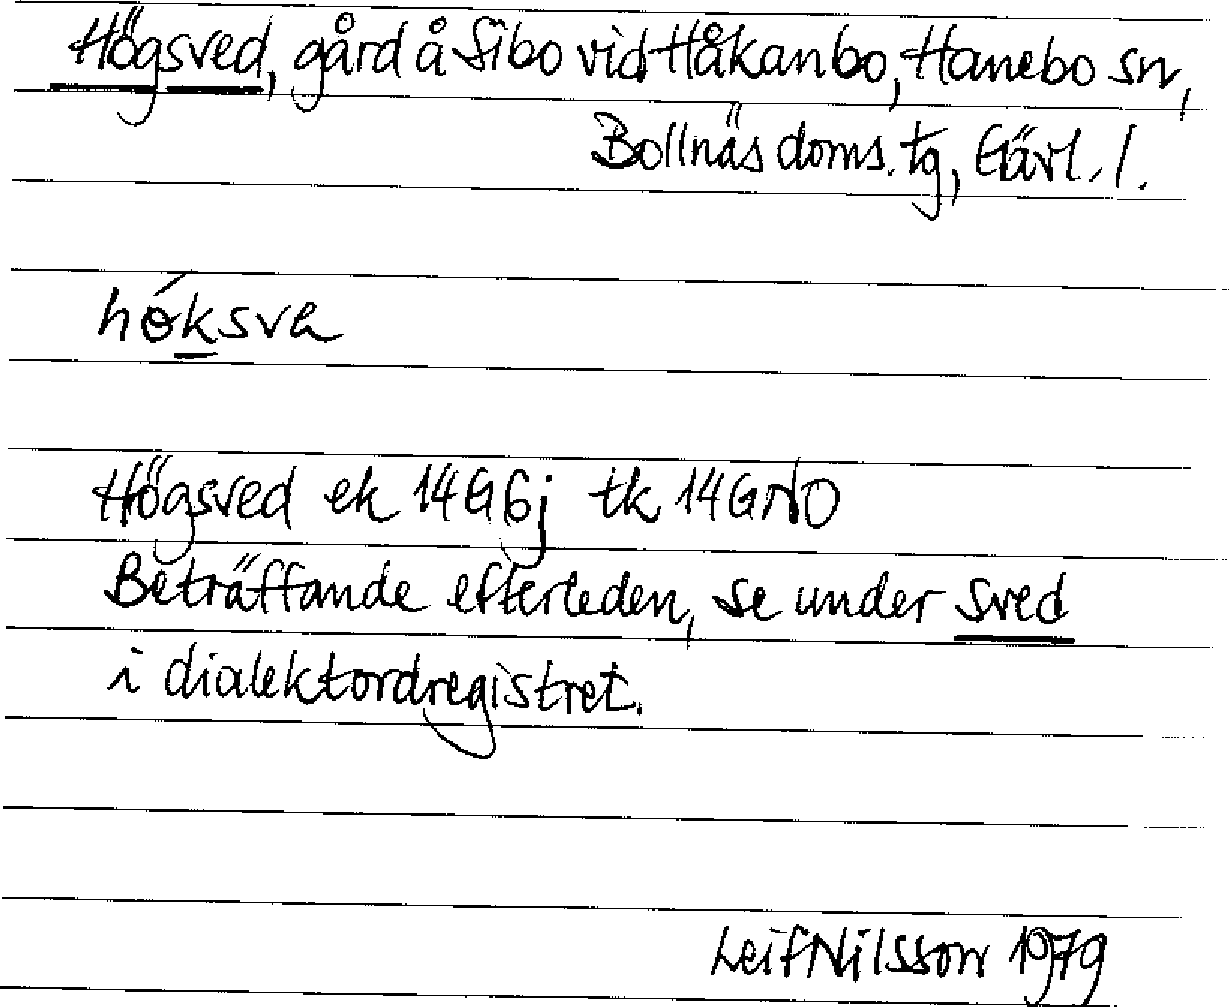 Högsved, gård å Sibo vid Håkanbo, Hanebo sn,
Bollnäs doms. tg, Gävl. l.
hǿksva
Högsved ek 14G6j tk 14GNO
Beträffande efterleden, se under sved
i dialektordregistret.
Leif Nilsson 1979